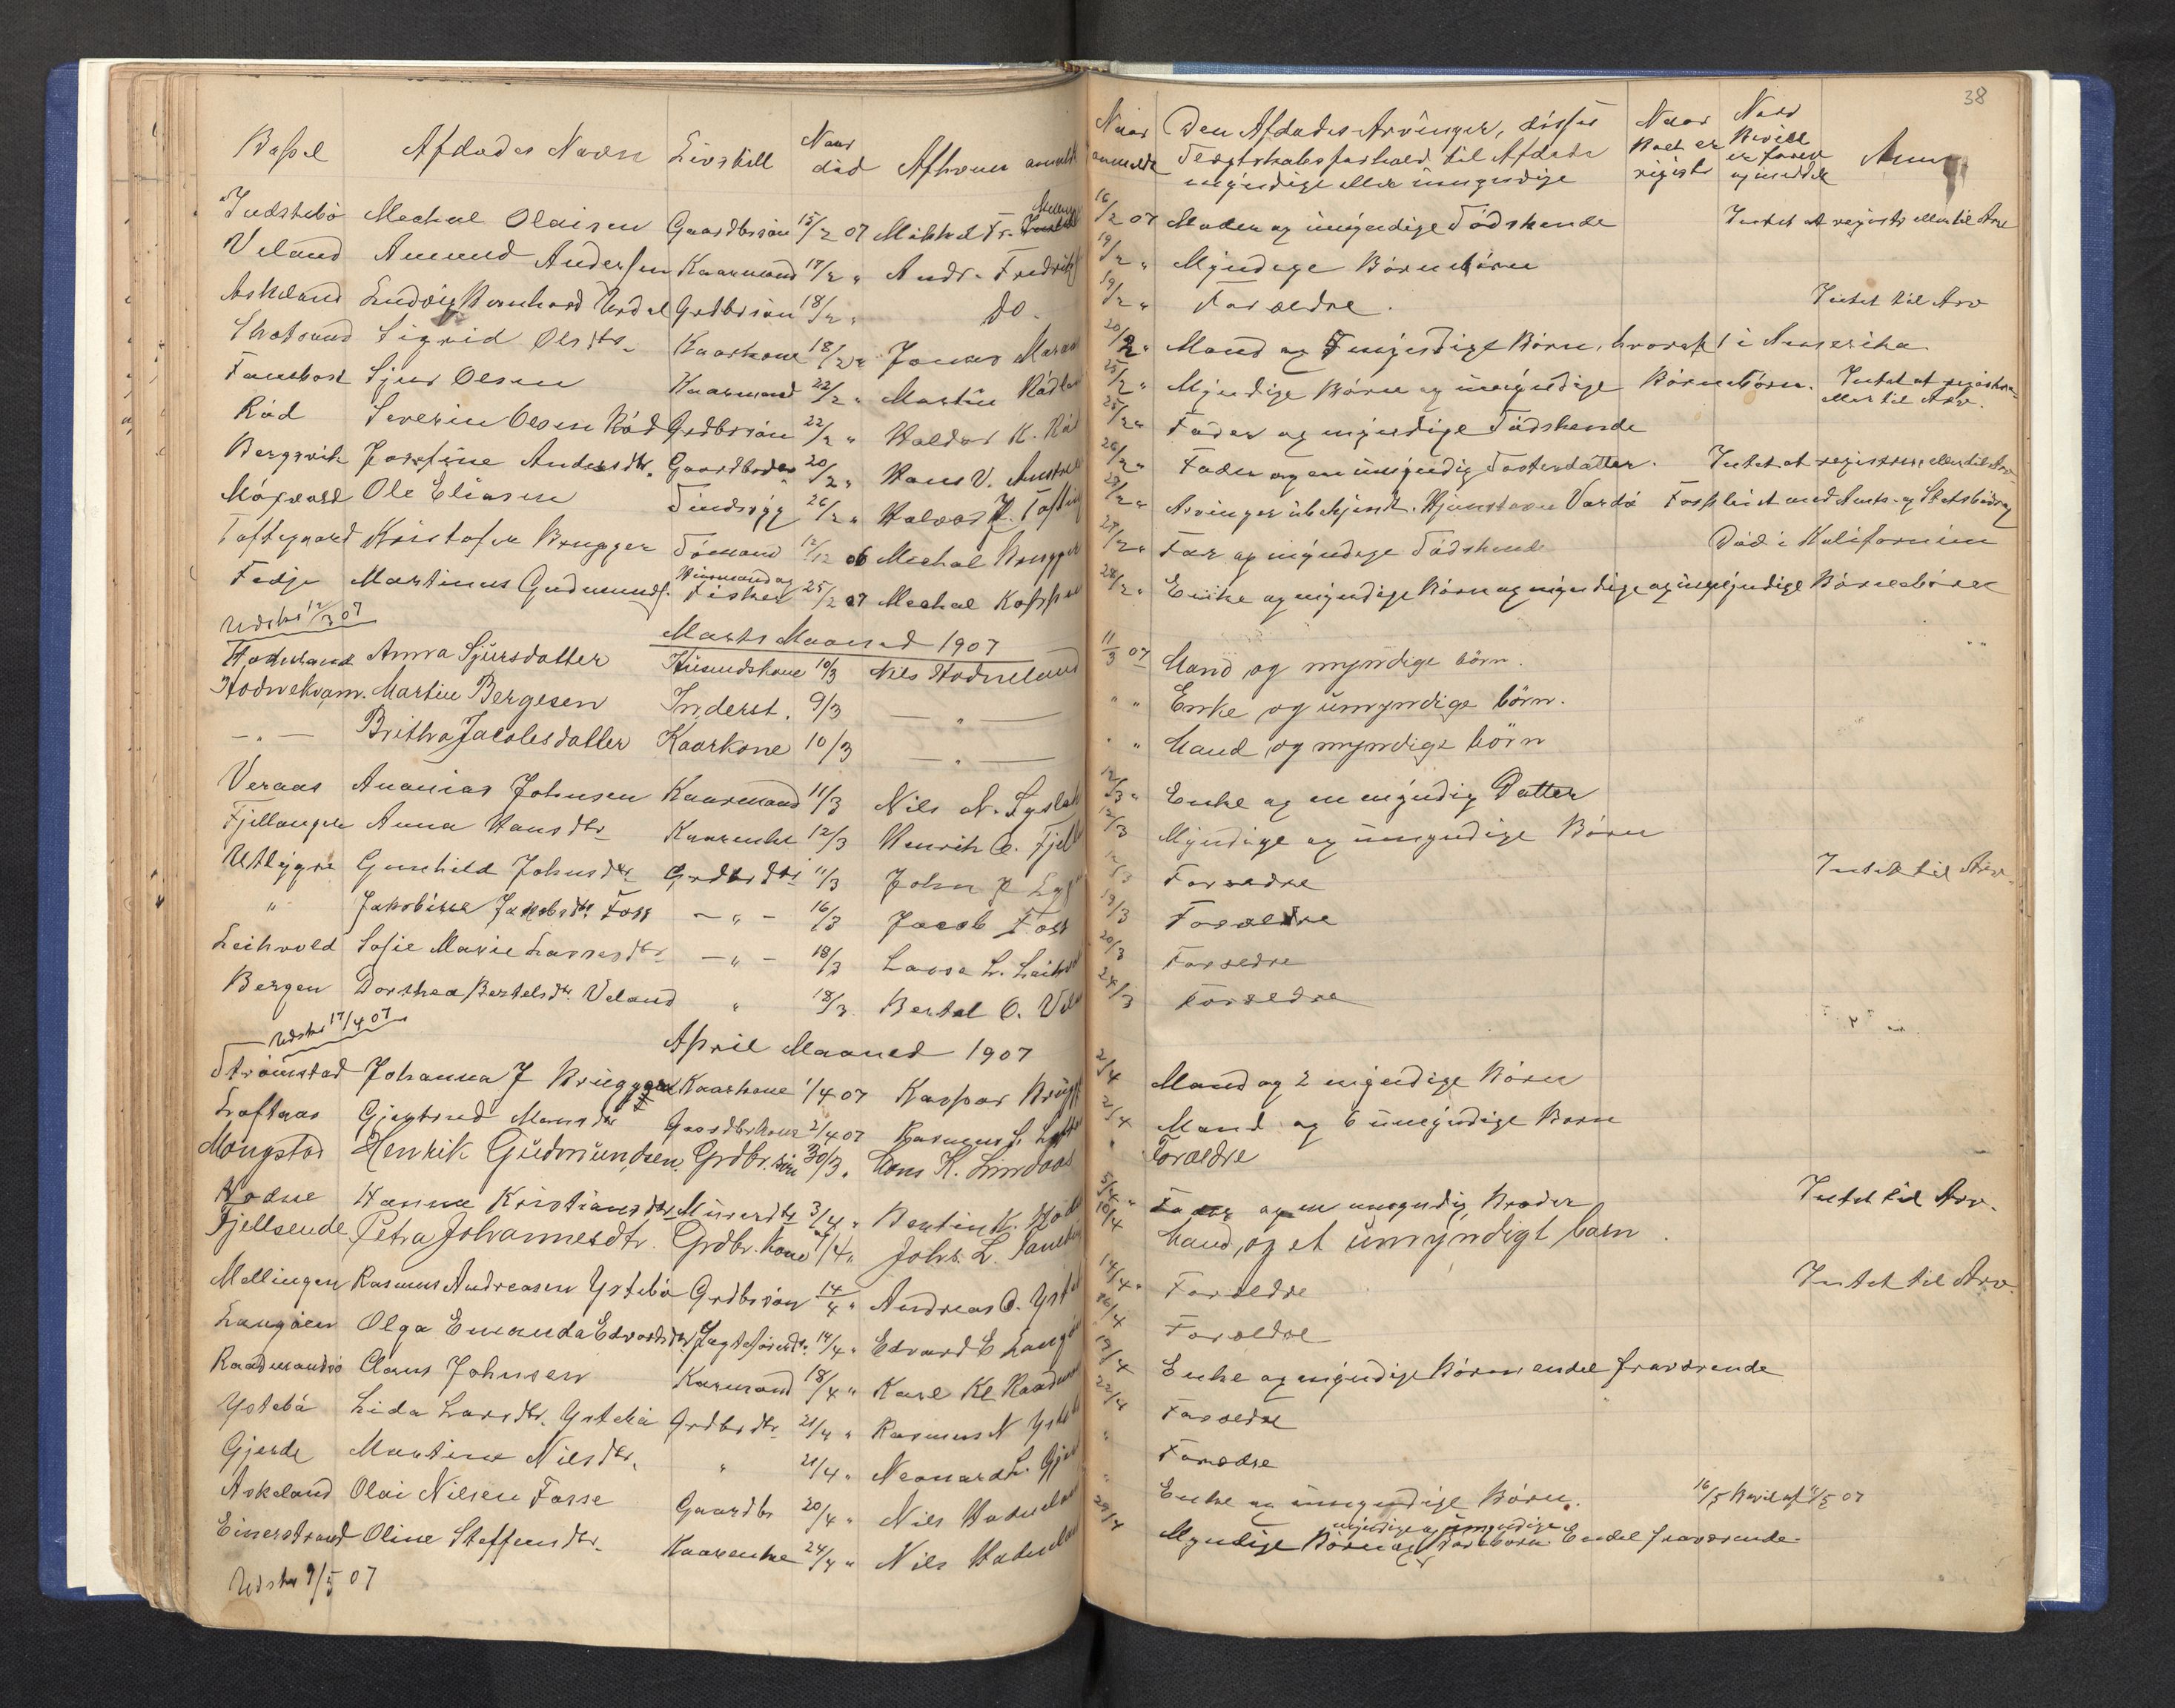 38
Bopel Afdødes Navn Livstill Naar død Afhvem anmeldt Naar anmeldt Den Afdødes Arvinger, disses Slegtskabsforhold til Afdøde myndige eller umyndige Naar Boet er registr Naar Bevill er forev og meddelt Anm
Indstebö Mechal Olaisen Gaardbrsön 15/2 07 Mikkel Fr. 16/2 07 Moder og umyndige Södskende Intet at registr eller til Arv
Veland Amund Andersen Kaarmand 17/2 " Andr. Fredrik 19/2 " Myndige Börnebörn
Askeland Ludvig Bernhard Urdal Grdbrsön 18/2 " do. 19/2 " Forældre. Intet til Arv
Sigrid Olsdtr. Kaarkone 18/2 " Jonas 20/2 " Mand og 7 myndige Börn, hvoraf 1 i Amerika.
Sjur Olsen Kaarmand 22/2 " Martin 25/2 " Myndige Börn og umyndige Börnebörn. Intet at registrere eller til Arv.
Röd Severin Olsen Röd Grdbrsön 22/2 " Haldor K. Rö 25/2 " Fader og myndige Södskende
Bergsvik Josefine Andersdtr. Gaardbrdr. 20/2 " Hans V. Austr 26/2 " Fader og en umyndig Søsterdatter. Intet at registrere eller til Arv
Ole Eliasen Sindssyg 26/2 " Halvor 28/2 " Arvinger ubekjendt. Hjemstavn Vardö Forpleiet med Amts- og Statsbidrag
Toftegaard Kristofer Brugger Sömand 12/12 06 Mechal Brugger 27/2 " Far og myndige Södskende Död i Kalifornien
Fedje Martinus Gudmunds. Huusmand og Fisker 25/2 07 Mechal Kopper 28/2 " Enke og myndige Börn og myndige og umyndige Börnebörn
Udskr 12/3 07
Marts Maaned 1907
Hodneland Anna Sjursdatter Husmandskone 10/3 Nils Hodneland 11/3 07 Mand og myndige börn.
Hodnekvam. Martin Bergesen Inderst. 9/3 — " — " " Enke og umyndige börn.
— " — Britha Jacobsdatter Kaarkone 10/3 — " — " " Mand og myndige börn
Veraas Ananias Johnsen Kaarmand 11/3 Nils N. 12/3 " Enke og en myndig Datter
Fjellanger Anna Hansdtr Kaarenke 12/3 Henrik O. Fjell 12/3 Myndige og umyndige Börn
Utlygre Gunhild Johnsdtr. Grdbrdtr 11/3 John J Lyg 12/3 Forældre Intet til Arv.
" Jakobine Jakobsdtr. Foss — " — 16/3 Jacob Foss 19/3 Forældre
Leihvold Sofie Marie Larsesdtr. — " — 18/3 Lasse L. Leihv 20/3 Forældre
Bergen Dorthea Bertelsdtr. Veland " 18/3 Bertel O. Vel 24/3 Forældre
Udskr 17/4 07
April Maaned 1907
Strömstad Johanna J Bruggere Kaarkone 1/4 07 Kaspar Brügg 2/4 Mand og 2 myndige Börn
Loftaas Gjertrud Monsdtr Gaardbrkone 2/4 07 Rasmus L. 2/4 Mand og 6 umyndige Born
Mongstad Henrik Gudmundsen. Grdbr.sön 30/3 " Mons K. Lindaas " Forældre
Hodne Hanna Kristiansdtr. 3/4 " Bertin K. Hod 5/4 " Fader og en umyndig Broder Intet til Arv.
Fjellsende Petra Johannesdtr. Grdbr. kone 7/4 " Johs. L. 10/4 Mand, og et umyndigt barn.
Mellingen Rasmus Andreasen Ystebö Grdbrsön 14/4 " Andreas O. Yst 14/4 " Forældre Intet til Arv.
Langöen Olga Emanda Edvardsdtr 14/4 " Edvard E Langö 16/4 Forældre
Raadmandsö Claus Johnsen Karmand 18/4 " Karl Kl Raadm 19/4 Enke og myndige Börn endel fraværende
Ystebö Lida Larsdtr. Ystebö Grdbrdtr. 21/4 " Rasmus N Yst 22/4 Forældre
Gjerde Martine Nilsdtr. " 21/4 " Neonard L. Gje " Forældre
Askeland Olai Nilsen Fosse Gaardbr 20/4 " Nils Hodnelan " Enke og umyndige Börn. 16/5 Bevil af 11/5 07
Einerstrand Oline Steffensdtr. Kaarenke 24/4 " Nils Hodnelan 29/4 Myndige Börn og myndige og umyndige Börnebörn Endel fraværende.
Udskr 9/5 07